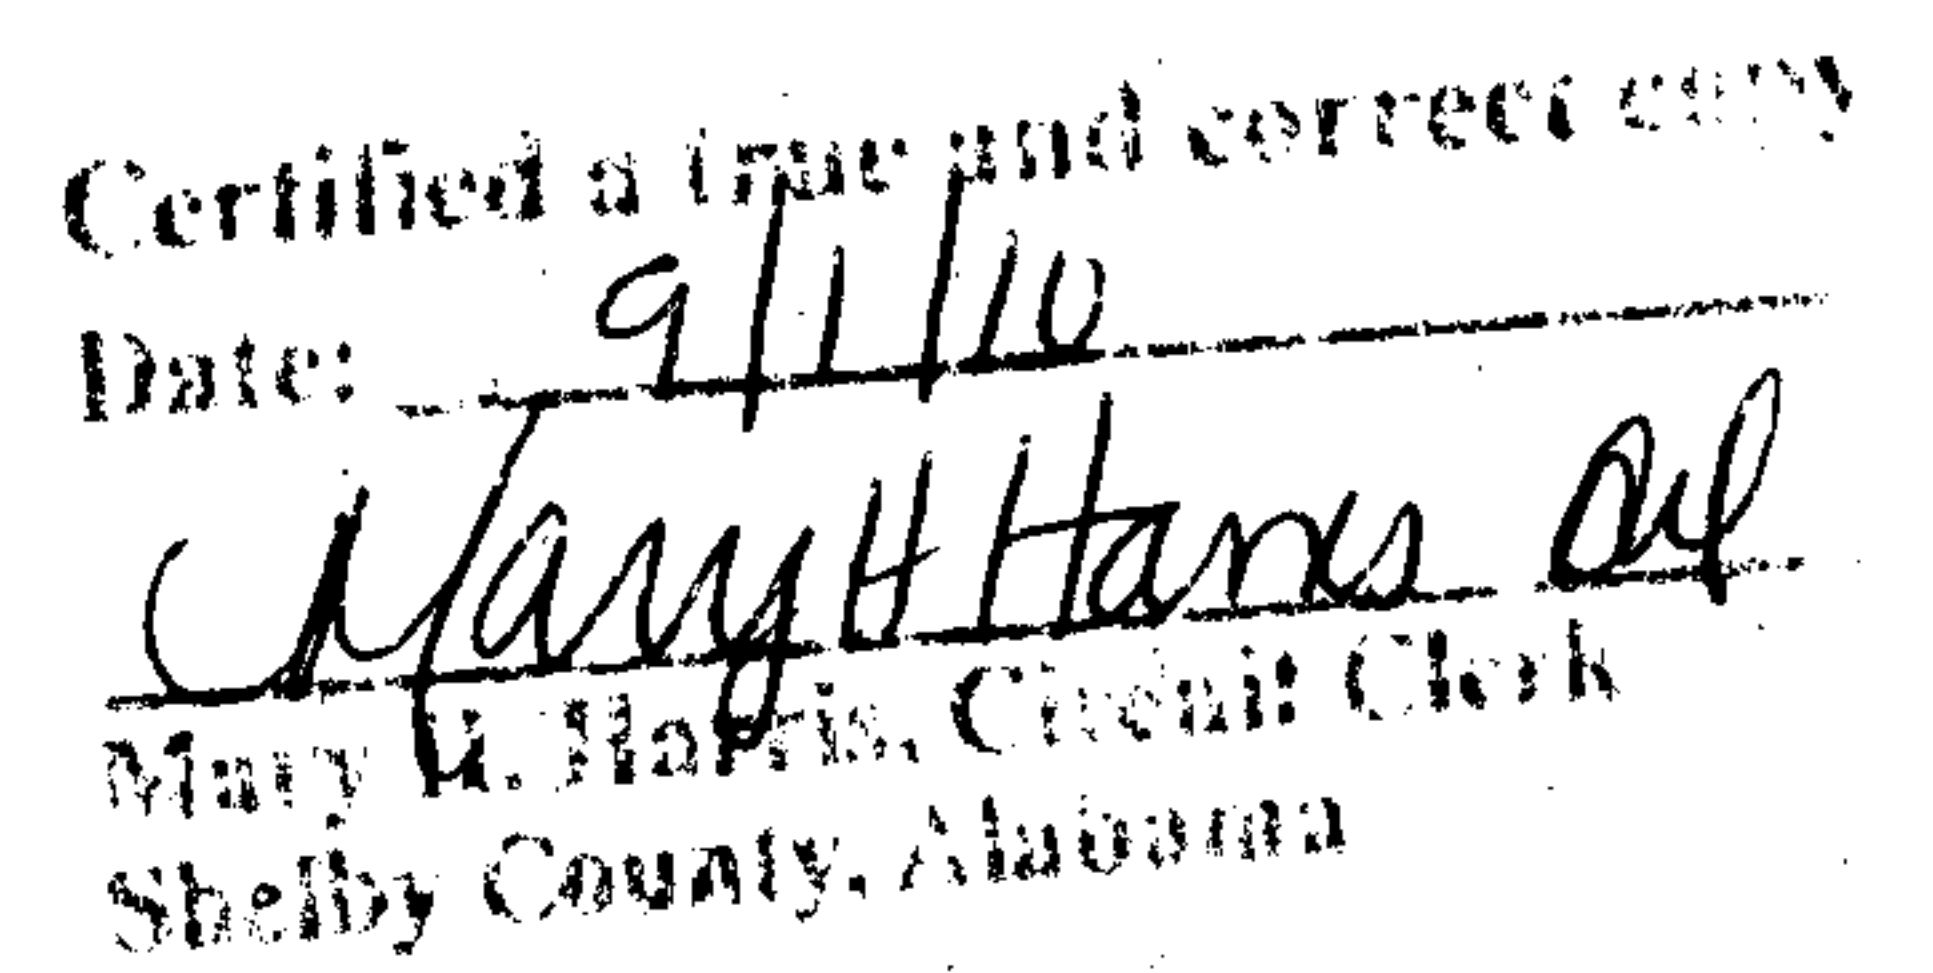 Certified a true and correct copy
Date: 9/1/10
Mary H Harris
Mary H. Harris, Circuit Clerk
Shelby County, Alabama